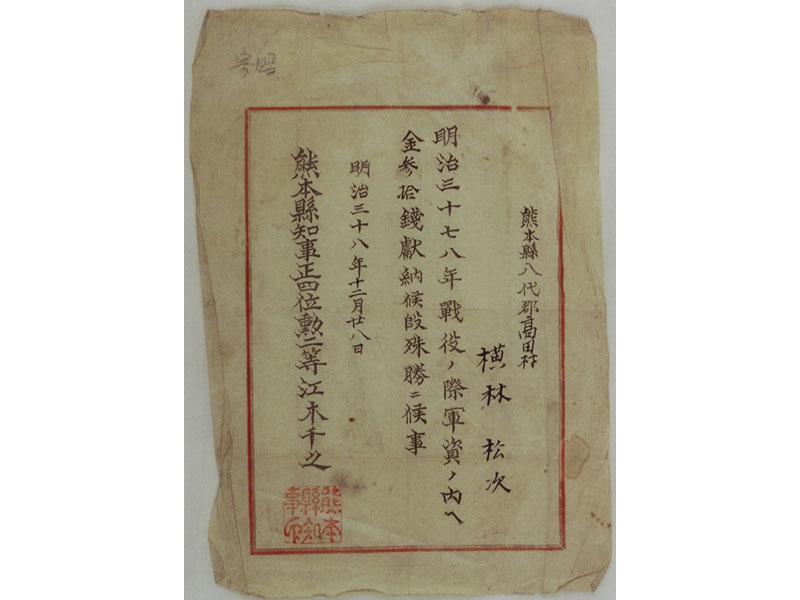 熊本縣八代郡高田村
横林松次
明治三十七八年戰役ノ際軍資ノ内ヘ
金参拾錢獻納候段殊勝ニ候事
明治三十八年十二月廿八日
熊本縣知事正四位勲二等江木千之
熊本
縣知
事印